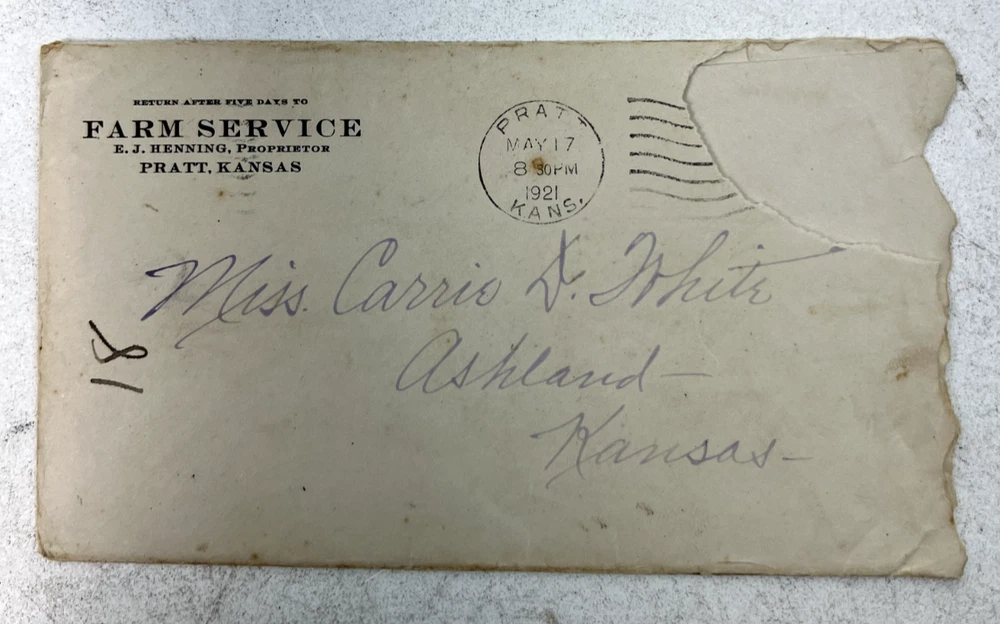 RETURN AFTER FIVE DAYS TO
FARM SERVICE
E. J. HENNING, PROPRIETOR
PRATT, KANSAS
PRATT
MAY 17
8 30 PM
1921
KANS.
Miss. Carrie D. White
Ashland—
Kansas—
18